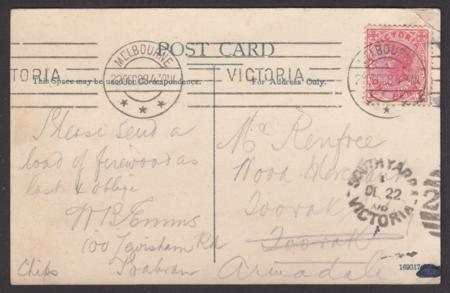 POST CARD
MELBOURNE
VICTORIA
VICTORIA
This Space may be used for Correspondence.
For Address Only.
VICTORIA
MELBOURNE
Please send a
load of firewood as
last & oblige
100 Tavisham Rd
Prahran
Chips
Mr Renfree
Wood Merchant
Toorak
Toorak
Armadale
SOUTH YARRA
1
DE 22
08
VICTORIA